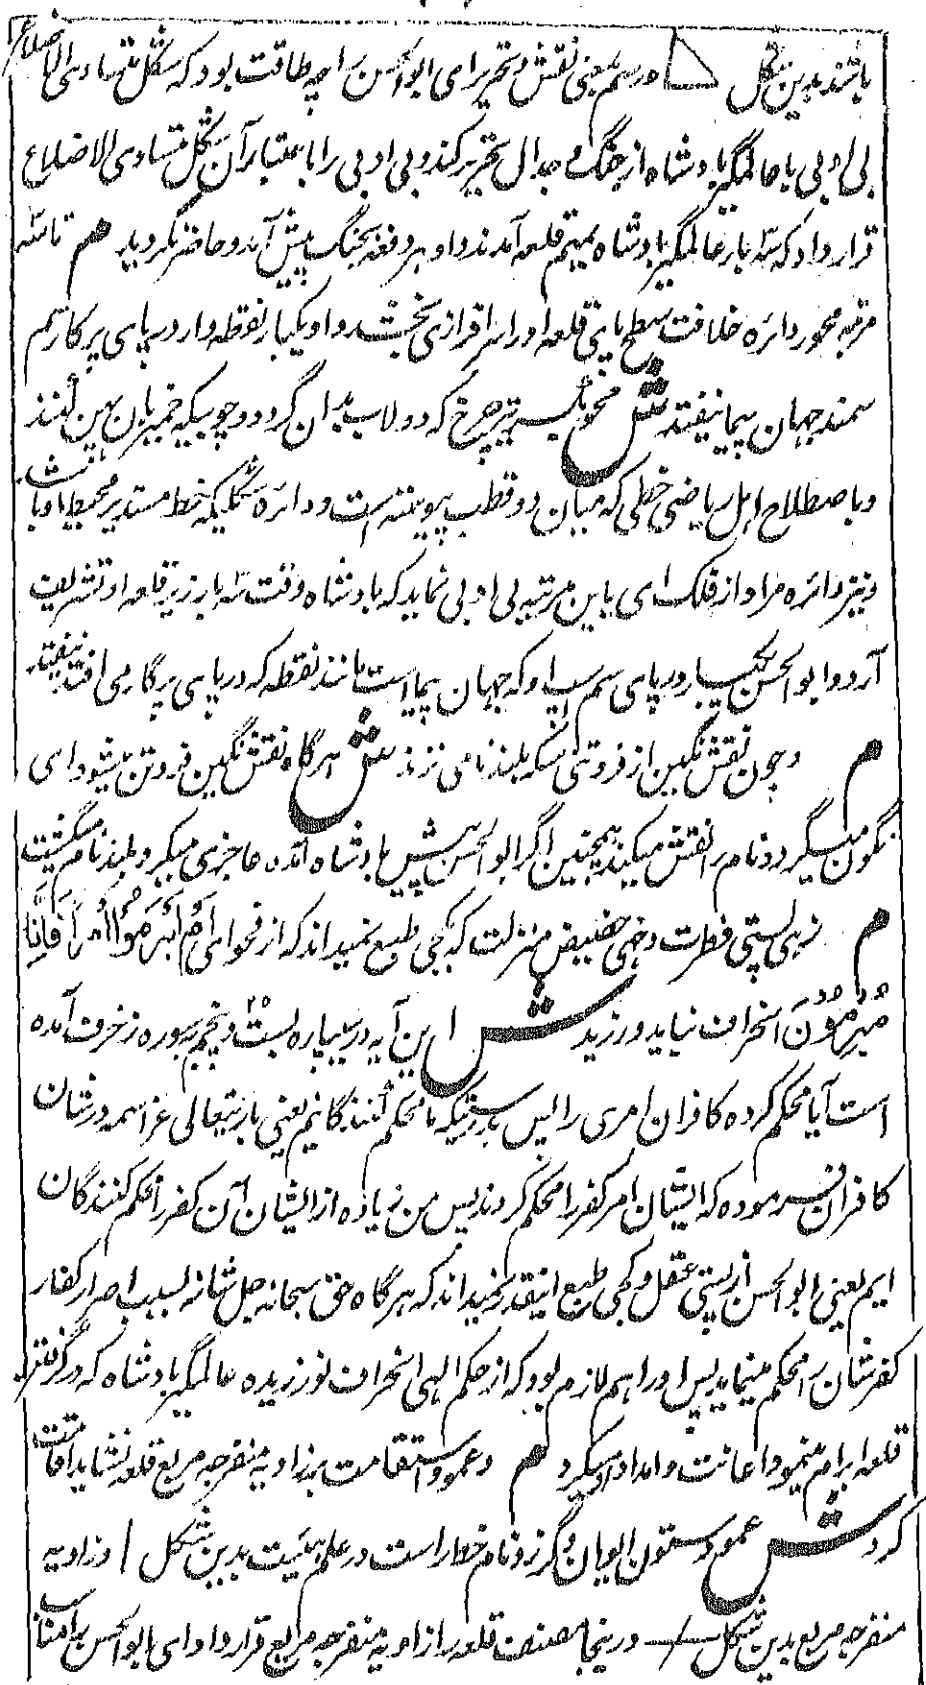 باشند بدین شکل و رسم یعنی نقش و تحریر ای ابوالحسن را چه طاقت بود که شکل متساوی الاضلاع
بی ادبی با عالمگیر بادشاه از جنگ و جدال تحریر کند و بی ادبی را باعتبار آن بشکل متساوی الاضلاع
قرار داد که سه بار عالمگیر بادشاه بمهم قلعه آمدند و او هر دفعه بجنگ پیش آمد و حاضر نگردید م تا سه
مرتبه محور دائره خلافت سطح پای قلعه او را سرافرازی بخشد و او یکبار نقطه وار در پای پرکار سم
سمند جهان پیما نیفتد ش محور تیر چرخ که دولاب بدان گردد و چوبیکه خمیر بان پهن کنند
و باصطلاح اهل ریاضی خطی که میان دو قطب پیوسته است و دائره شکلیکه خط مستدیر محیط او باشد
و نیز دائره مراد از فلک ای باین مرتبه بی ادبی نماید که بادشاه وقت سه بار زیر قلعه او تشریف
آرد و ابوالحسن یکبار در پای سم اسپ او که جهان پیما است مانند نقطه که در پای پرگار می افتد نیفتد
م و چون نقش نگین از فروتنی سکه بلند نامی نزند ش هرگاه نقش نگین فروتن میشود ای
نگون میگردد نام را نقش میکند همچنین اگر ابوالحسن پیش بادشاه آمده عاجزی میکرد بلند نام میگشت
م زهی پستی فطرت و خهی حضیض منزلت که بکجی طبع نمیداند که از فحوای أَمْ أَبْرَمُوْا أَمْرًا فَإِنَّا
مُبْرِمُوْنَ انحراف نباید ورزید ش این آیه در سیپاره بست و پنجم بسوره زخرف آمده
است آیا محکم کرده کافران امری را پس بدرستیکه ما محکم کنندگانیم یعنی باریتعالی عز اسمه در شان
کافران فرموده که ایشان امر کفر را محکم کردند پس من زیاده از ایشان آن کفر را محکم کنندگان
ایم یعنی ابوالحسن از پستی عقل و کجی طبع اینقدر نمیداند که هرگاه حق سبحانه جل شانه بسبب اصرار کفار
کفر شان را محکم مینماید پس او را هم لازم بود که از حکم الهی انحراف نورزیده عالمگیر بادشاه که در گرفتن
قلعه ابرام مینمود اعانت و امداد او میکرد م و عمود استقامت بر زاویه منفرجه مربع قلعه نشاید اقامت
کرد ش عمود ستون ایوان و گرز و نام خط راست در علم هیئت بدین شکل | و زاویه
منفرجه مربع بدین شکل و درینجا مصنف قلعه را زاویه منفرجه مربع قرار داد ای ابوالحسن را مناسب